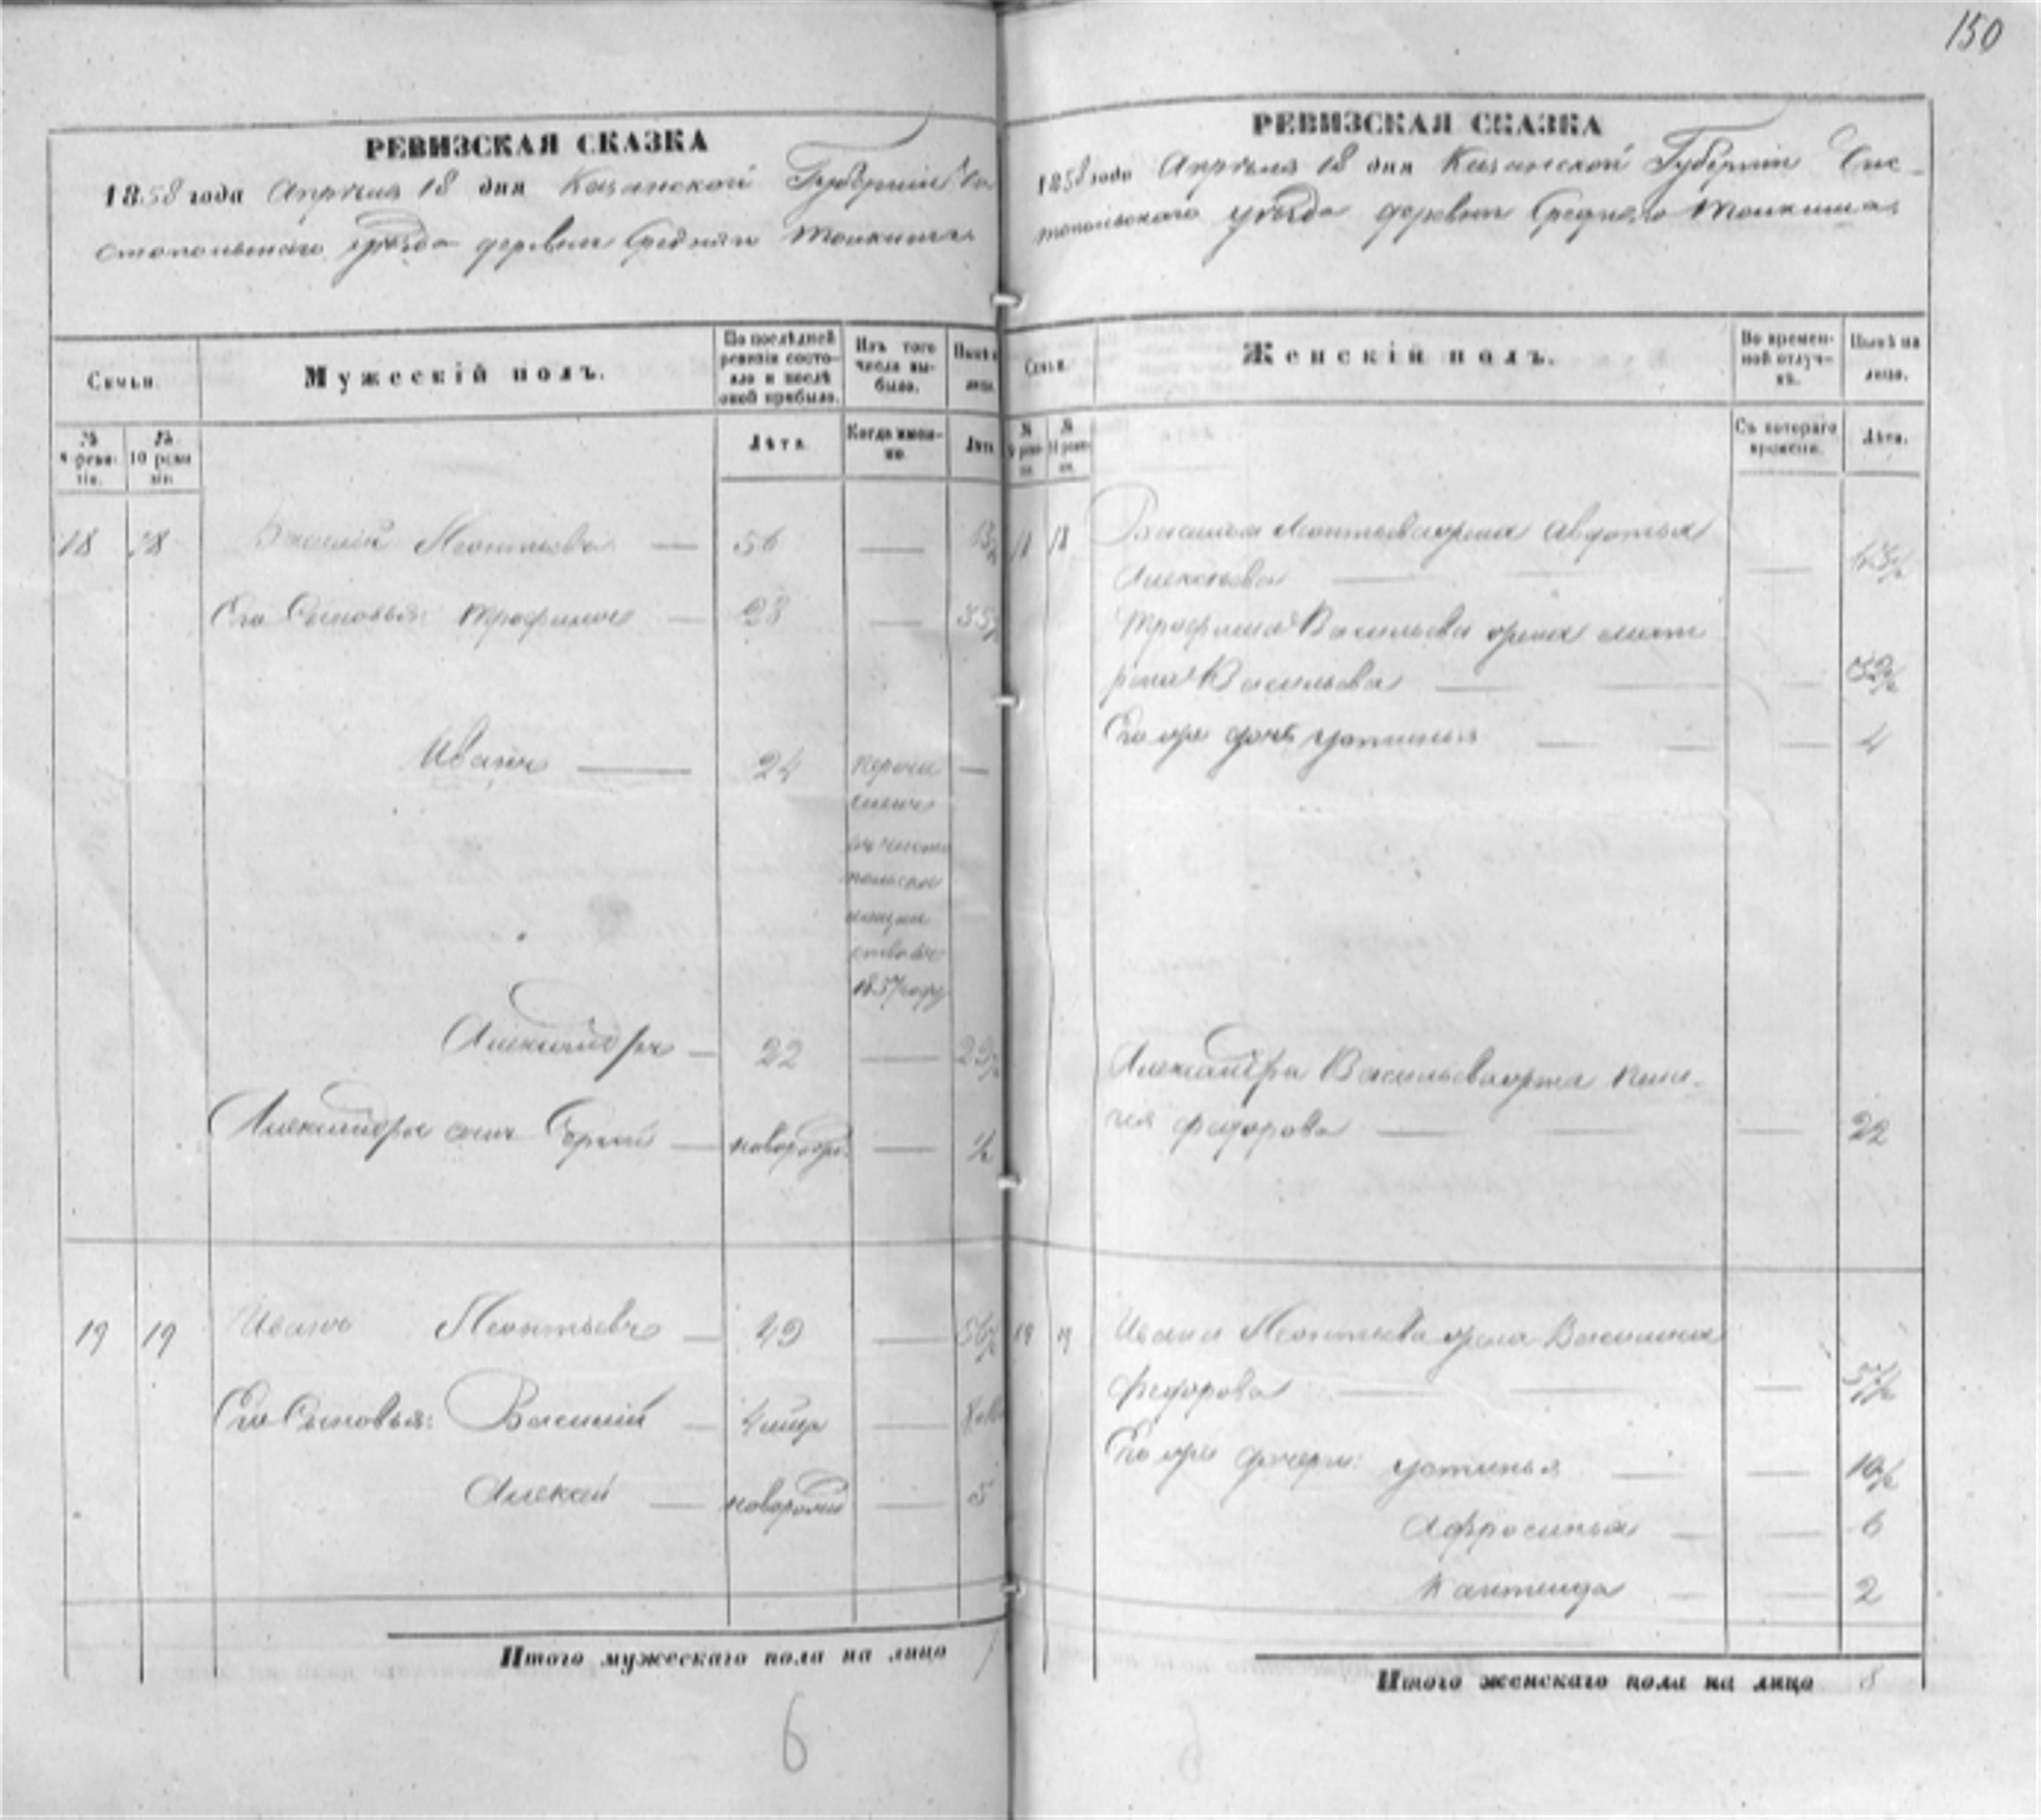 150
РЕВИЗСКАЯ СКАЗКА
1858 года Апреля 18 дня Казанской Губернии Чи
стопольскаго уезда деревни Средняго Толкиша
Семьи. Мужескій полъ. По послѣдней ревизіи состояло и послѣ оной прибыло. Изъ того числа выбыло. Нынѣ на лицо.
№ 9 ревизіи. № 10 ревизіи. Лѣта. Когда именно. Лѣта.
18 18 Василій Леонтьевъ — 56 —
Его Сыновья: Трофимъ — 28 — 35½
Иванъ — 24 перечи —
сленъ
въ чисто
польское
мещан
ство въ
1857 году
Александръ — 22 — 29½
Александра сынъ Сергей — новорожд. — ½
19 19 Иванъ Леонтьевъ — 49 — 56½
Его Сыновья: Василий — 4 мца —
Алексей — новорожд — 5
Итого мужескаго пола на лицо
6
РЕВИЗСКАЯ СКАЗКА
1858 года Апреля 18 дня Казанской Губернии Чис-
топольскаго уезда деревни Средняго Толкиша
Семьи. Женскій полъ. Во временной отлучкѣ. Нынѣ на лицо.
№ 9 ревизіи. № 10 ревизіи. Съ котораго времени. Лѣта.
18 18 Василья Леонтьева жена Авдотья
Алексеева — —
Трофима Васильева жена мат
рена Васильева — — 32½
Его же дочь Устинья — — 4
Александра Васильева жена
Федорова — — 22
19 19 Ивана Леонтьева жена Василиса
Федорова — —
Его же дочери: Устинья — — 10½
Афросинья — — 6
— — 2
Итого женскаго пола на лицо 8